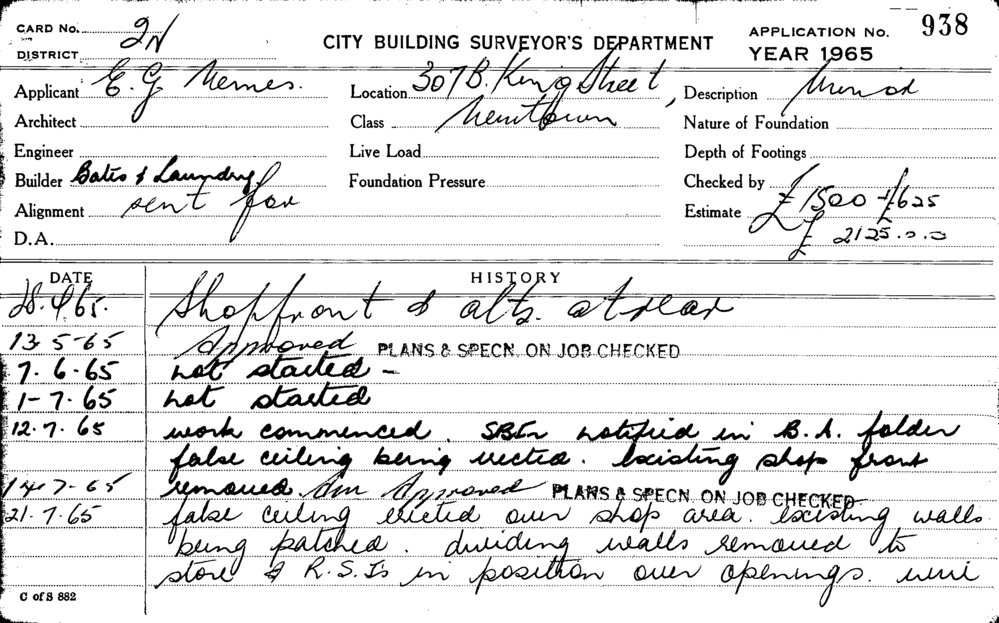 CARD No. 2N
DISTRICT
CITY BUILDING SURVEYOR'S DEPARTMENT
APPLICATION No. 938
YEAR 1965
Applicant E. G Nemes.
Location 307B. King Street,
Description
Architect
Class Newtown
Nature of Foundation
Engineer
Live Load
Depth of Footings
Builder Bates & Laundry
Foundation Pressure
Checked by
Alignment sent for
Estimate £1500 + £625
D.A.
£ 2125.0.0
DATE
HISTORY
28.4.65. Shopfront & alts. at rear
13.5-65 Approved PLANS & SPECN. ON JOB CHECKED
7.6.65 not started -
1-7.65 not started
12.7.65 work commenced. notified in B.A. folder
false ceiling being erected. existing shop front
14-7-65 removed. Am Approved PLANS & SPECN. ON JOB CHECKED
21.7.65 false ceiling erected over shop area. existing walls
being patched. dividing walls removed to
store & R.S.Js in position over openings.
C of S 882